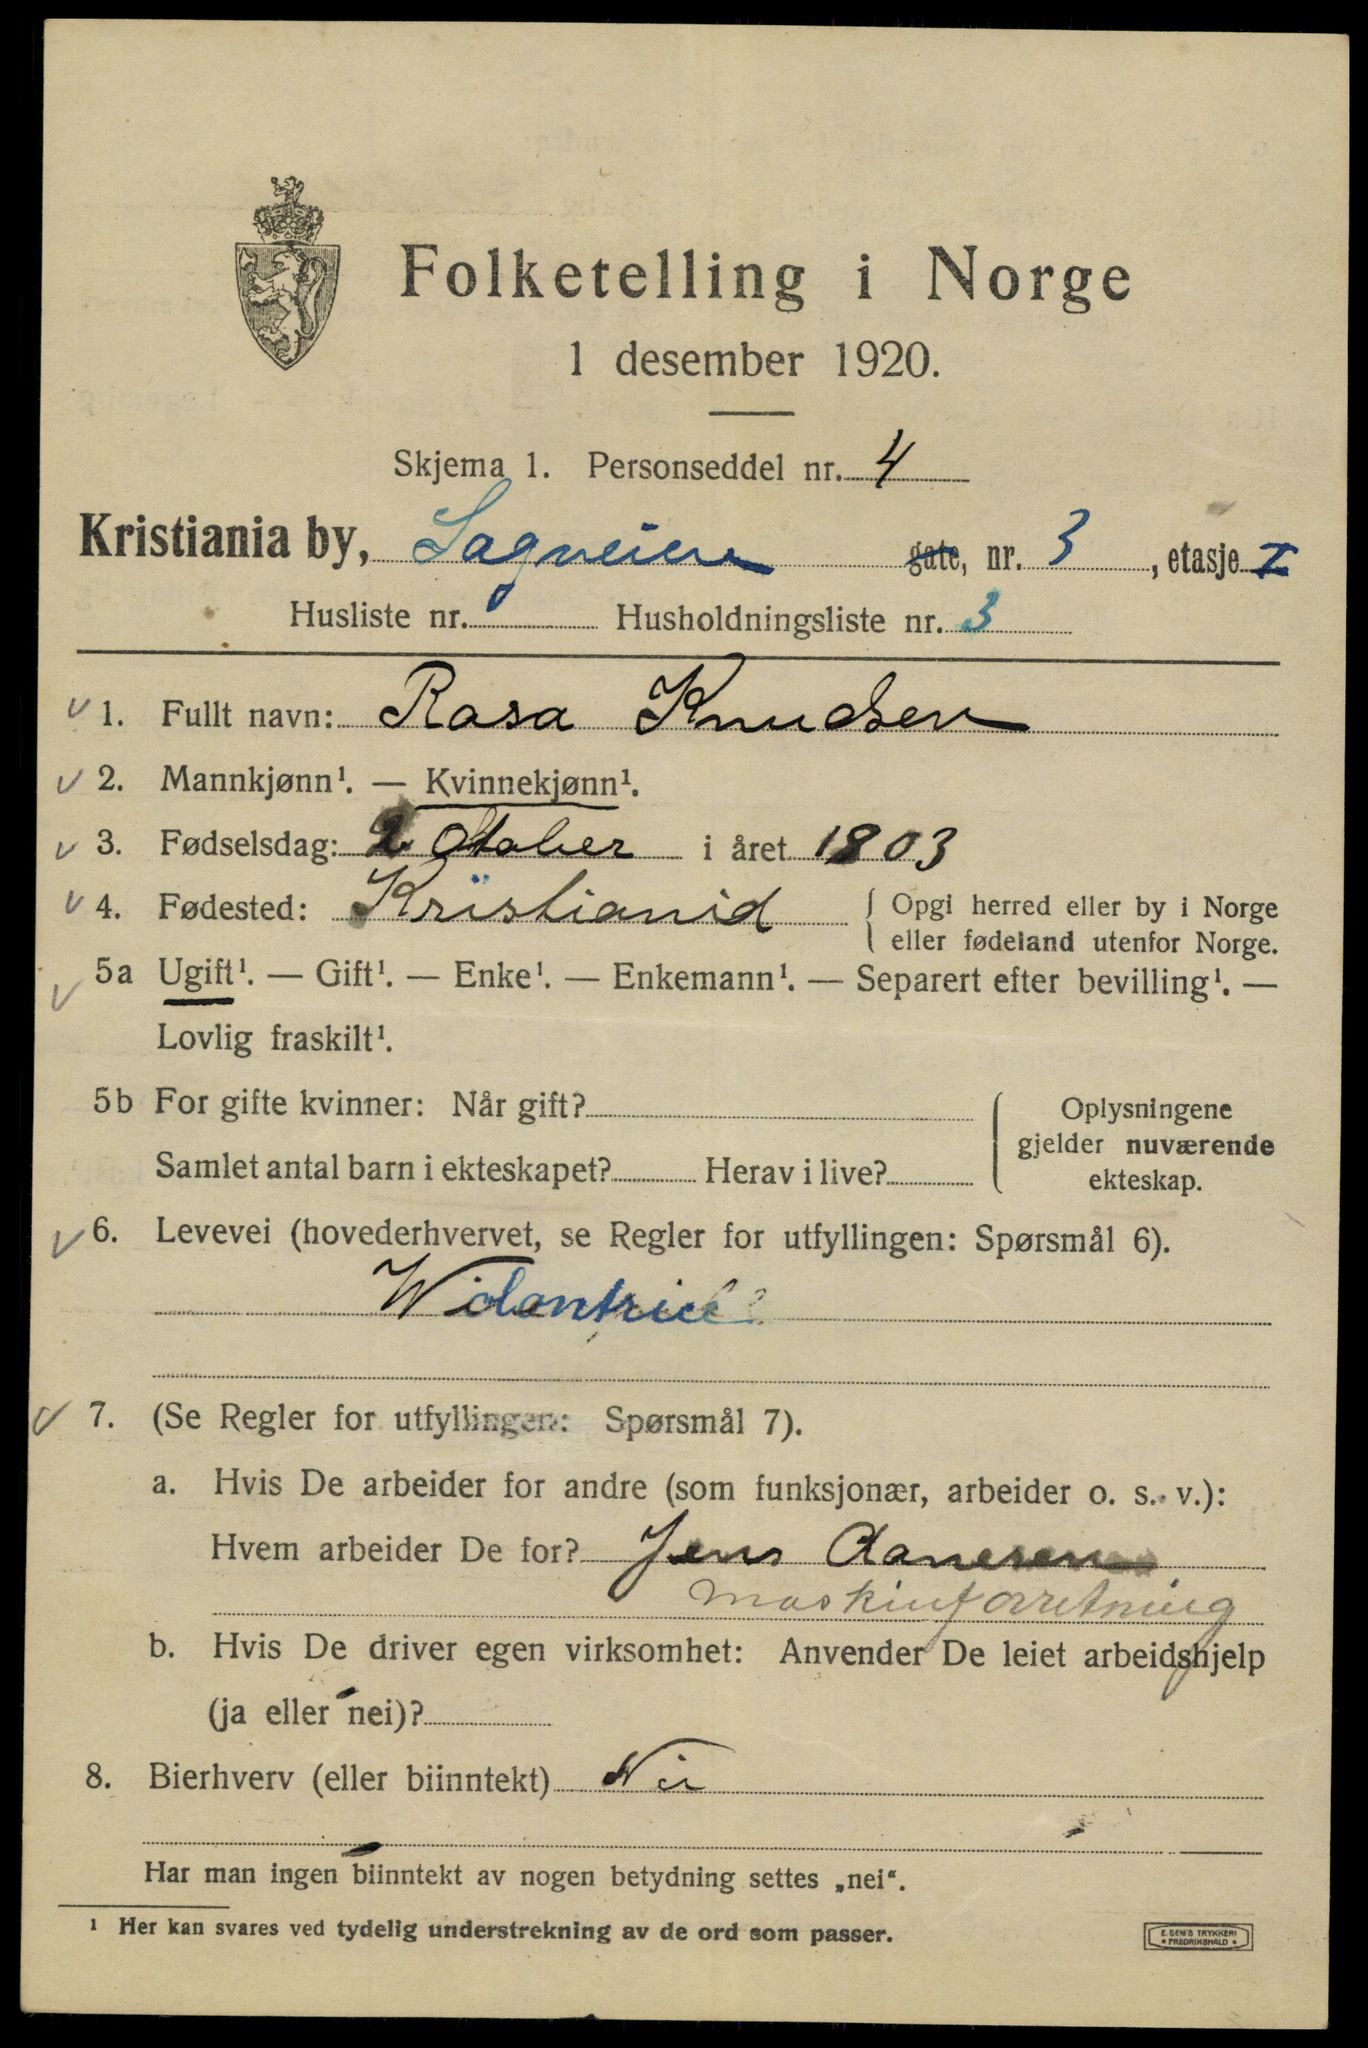 Folketelling i Norge
1 desember 1920.
Skjema 1. Personseddel nr. 4
Kristiania by, Sagveien gate, nr. 3, etasje I
Husliste nr. Husholdningsliste nr. 3
1. Fullt navn: Rasa Knudsen
2. Mannkjønn¹. — Kvinnekjønn¹.
3. Fødselsdag: 2 Otober i året 1803
4. Fødested: Kristianid { Opgi herred eller by i Norge
eller fødeland utenfor Norge.
5a Ugift¹. — Gift¹. — Enke¹. — Enkemann¹. — Separert efter bevilling¹. —
Lovlig fraskilt¹.
5b For gifte kvinner: Når gift?
Samlet antal barn i ekteskapet? Herav i live?
Oplysningene
gjelder nuværende
ekteskap.
6. Levevei (hovederhvervet, se Regler for utfyllingen: Spørsmål 6).
7. (Se Regler for utfyllingen: Spørsmål 7).
a. Hvis De arbeider for andre (som funksjonær, arbeider o. s. v.):
Hvem arbeider De for? Jens Aanesen
maskinforretning
b. Hvis De driver egen virksomhet: Anvender De leiet arbeidshjelp
(ja eller nei)?
8. Bierhverv (eller biinntekt) Nei
Har man ingen biinntekt av nogen betydning settes „nei“.
¹ Her kan svares ved tydelig understrekning av de ord som passer.
E. SEM'S TRYKKERI
* FREDRIKSHALD *